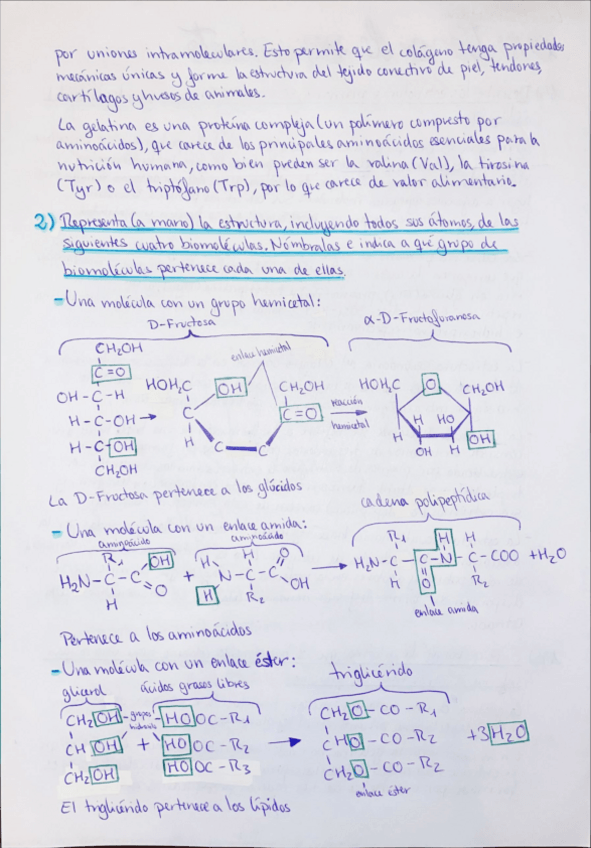 por uniones intramoleculares. Esto permite que el colágeno tenga propiedades
mecánicas únicas y forme la estructura del tejido conectivo de piel, tendones,
cartílagos y huesos de animales.
La gelatina es una proteína compleja (un polímero compuesto por
aminoácidos), que carece de los principales aminoácidos esenciales para la
nutrición humana, como bien pueden ser la valina (Val), la tirosina
(Tyr) o el triptófano (Trp), por lo que carece de valor alimentario.
2) Representa (a mano) la estructura, incluyendo todos sus átomos, de las
siguientes cuatro biomoléculas. Nómbralas e indica a qué grupo de
biomoléculas pertenece cada una de ellas.
- Una molécula con un grupo hemicetal:
D-Fructosa
α-D-Fructofuranosa
enlace hemicetal
CH₂OH
C=O
OH-C-H
H-C-OH
H-C-OH
CH₂OH
HOH₂C
OH
C
H
C
C
CH₂OH
C=O
reacción
hemicetal
HOH₂C
O
CH₂OH
H
HO
H
OH
H
OH
La D-Fructosa pertenece a los glúcidos
cadena polipeptídica
- Una molécula con un enlace amida:
aminoácido
aminoácido
R₁ OH
H₂N-C-C
O
H
+
H H O
N-C-C
H R₂ OH
R₁ H H
H₂N-C-C-N-C-COO + H₂O
H O R₂
enlace amida
Pertenece a los aminoácidos
- Una molécula con un enlace éster:
glicerol
ácidos grasos libres
triglicérido
grupos
CH₂OH
CH OH
CH₂OH
+
HOOC-R₁
HOOC-R₂
HOOC-R₃
CH₂O-CO-R₁
CHO-CO-R₂
CH₂O-CO-R₂
+3H₂O
enlace éster
El triglicérido pertenece a los lípidos